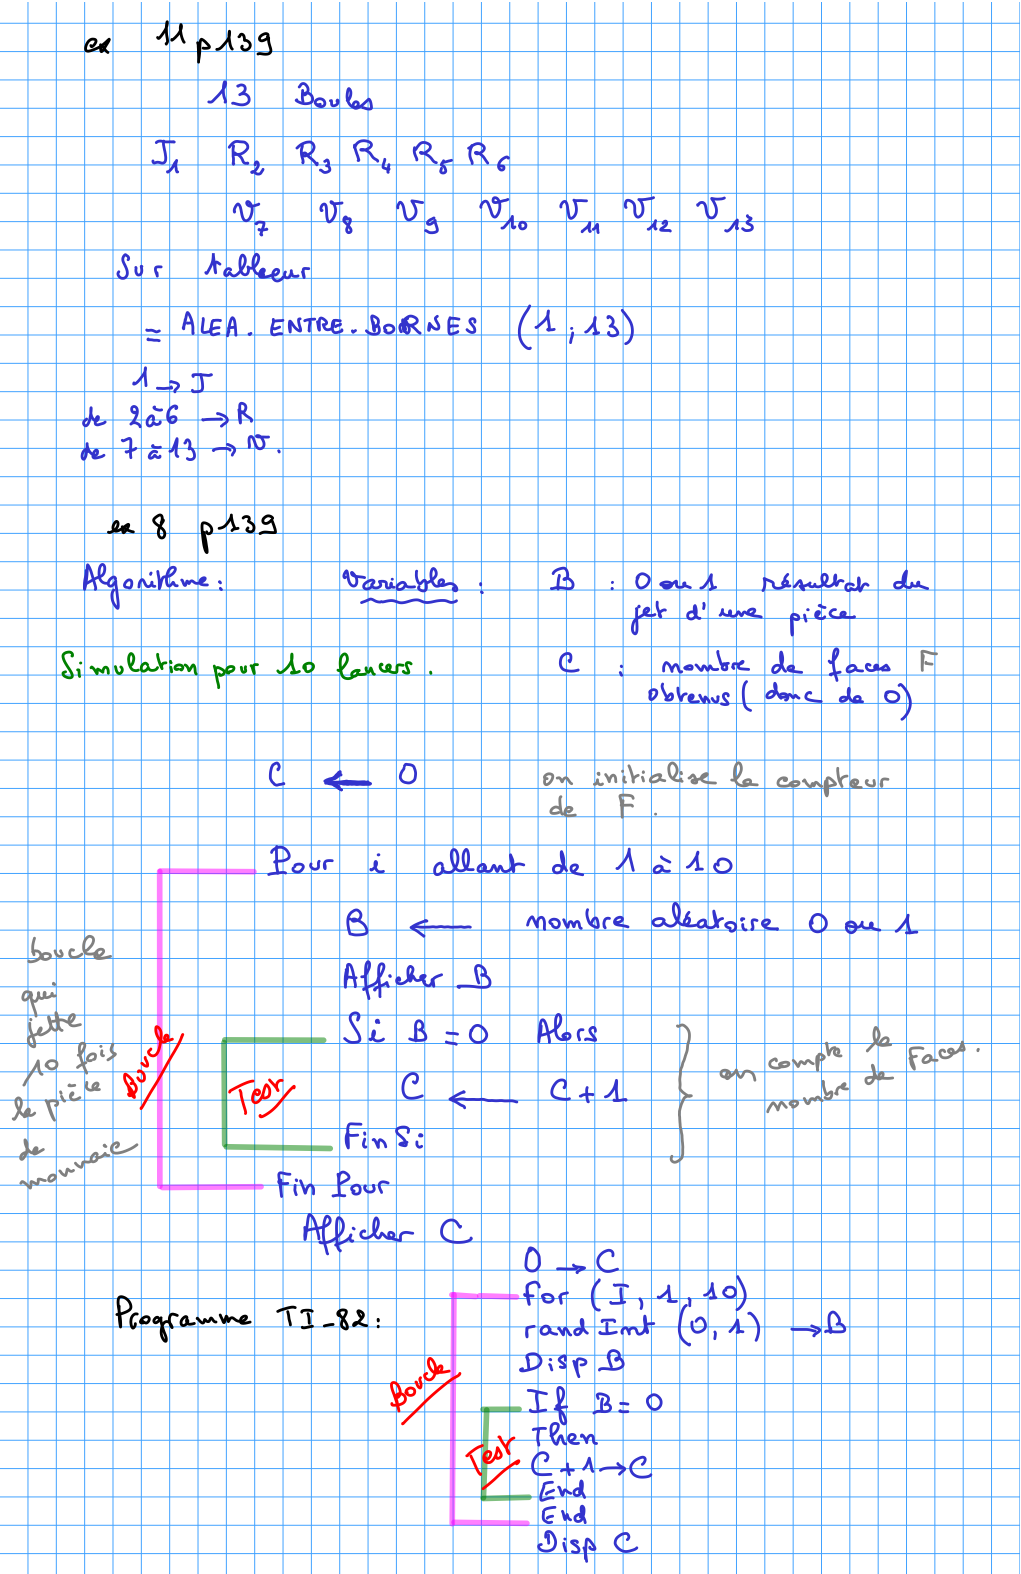 ex 11 p139
13 Boules
J1 R2 R3 R4 R5 R6
V7 V8 V9 V10 V11 V12 V13
Sur tableur
= ALEA.ENTRE.BORNES (1;13)
1 → J
de 2 à 6 → R
de 7 à 13 → V.
ex 8 p139
Algorithme: Variables: B : 0 ou 1 résultat du
jet d'une pièce
Simulation pour 10 lancers.
C : nombre de faces F
obtenus (donc de 0)
C ← 0
on initialise le compteur
de F.
Pour i allant de 1 à 10
B ← nombre aléatoire 0 ou 1
Afficher B
Si B = 0 Alors
C ← C + 1
Fin Si
Fin Pour
Afficher C
boucle
qui
jette
10 fois
la pièce
de
monnaie
Boucle
Test
on compte le
nombre de Faces.
Programme TI-82:
0 → C
for (I, 1, 10)
rand Int (0, 1) → B
Disp B
If B = 0
Then
C + 1 → C
End
End
Disp C
Boucle
Test